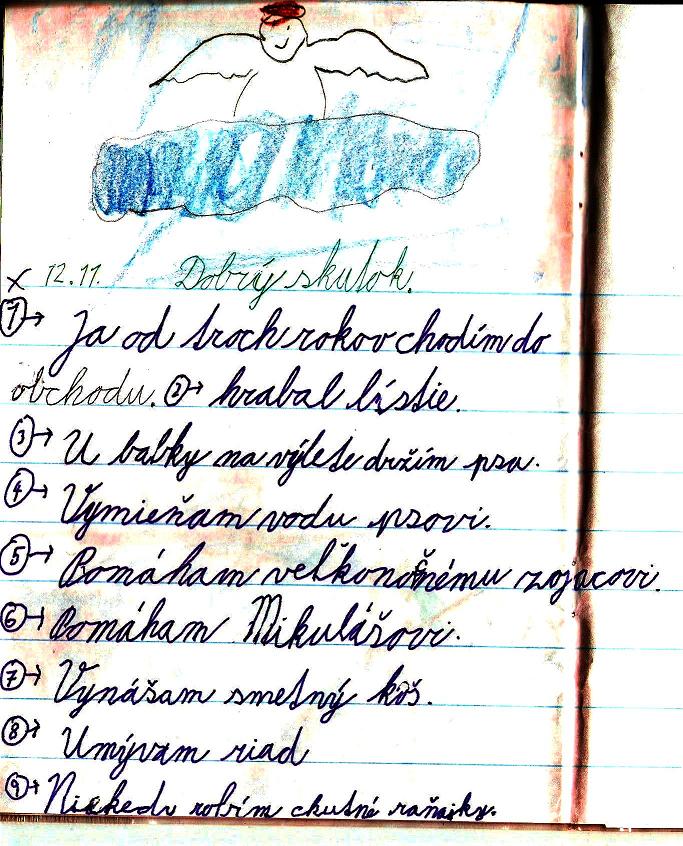 x 12.11. Dobrý skutok.
1→ Ja od troch rokov chodím do
obchodu. 2→ hrabal lístie.
3→ U babky na výlete držím psa.
4→ Vymieňam vodu psovi.
5→ Pomáham veľkonočnému zojacovi.
6→ Pomáham Mikulášovi.
7→ Vynášam smetný kôš.
8→ Umývam riad
9→ Niekedy robím chutné raňajky.